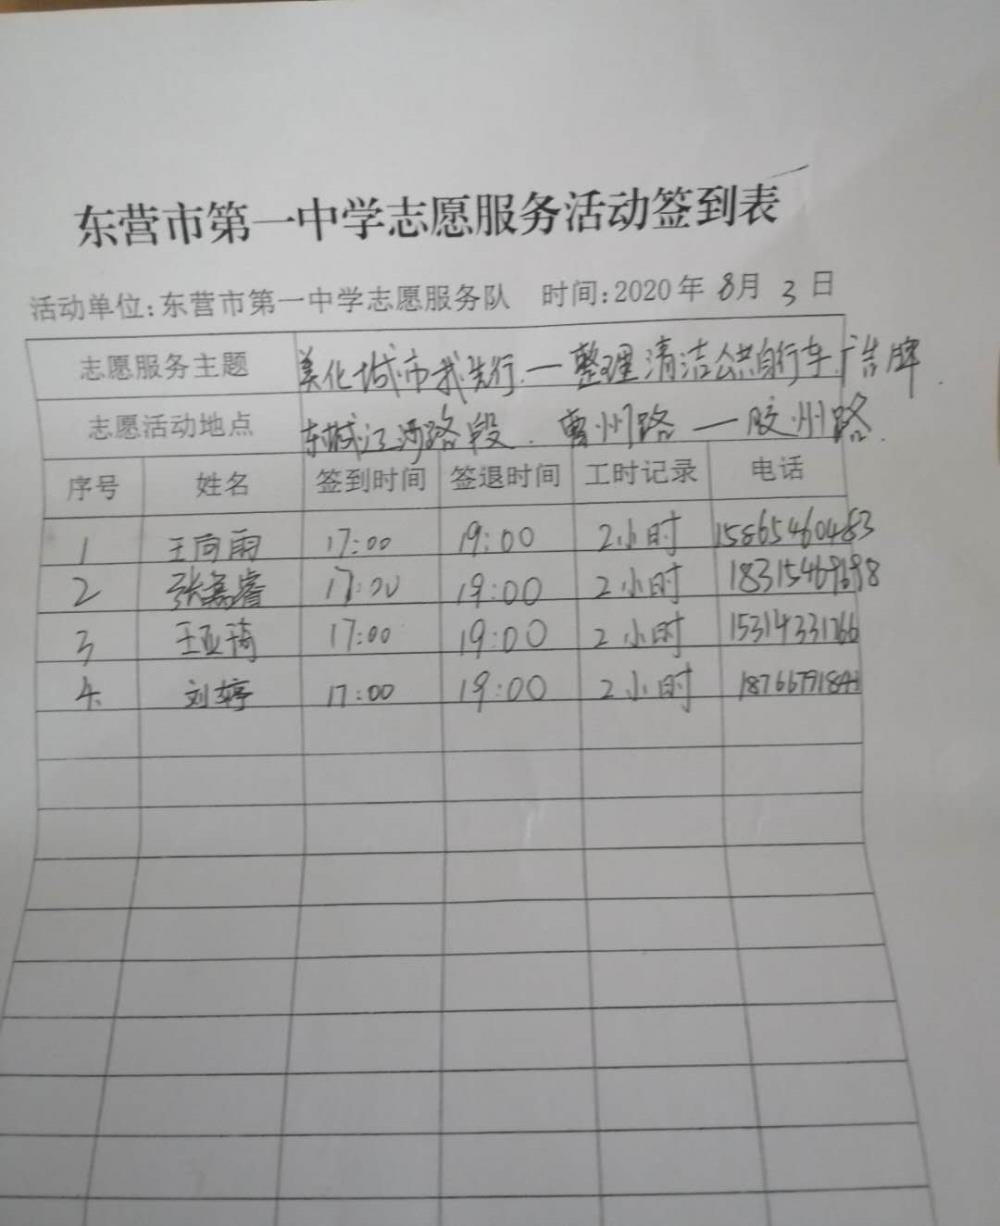 东营市第一中学志愿服务活动签到表
活动单位:东营市第一中学志愿服务队 时间:2020年 8月 3 日
志愿服务主题 美化城市我先行.一整理清洁公共自行车.广告牌.
志愿活动地点 东城江河路段.曹州路 — 胶州路.
序号 姓名 签到时间 签退时间 工时记录 电话
1 王向雨 17:00 19:00 2小时 15865460483
2 张睿 17:00 19:00 2小时 18315469698
3 王亚琦 17:00 19:00 2小时 15314331766
4. 刘婷 17:00 19:00 2小时